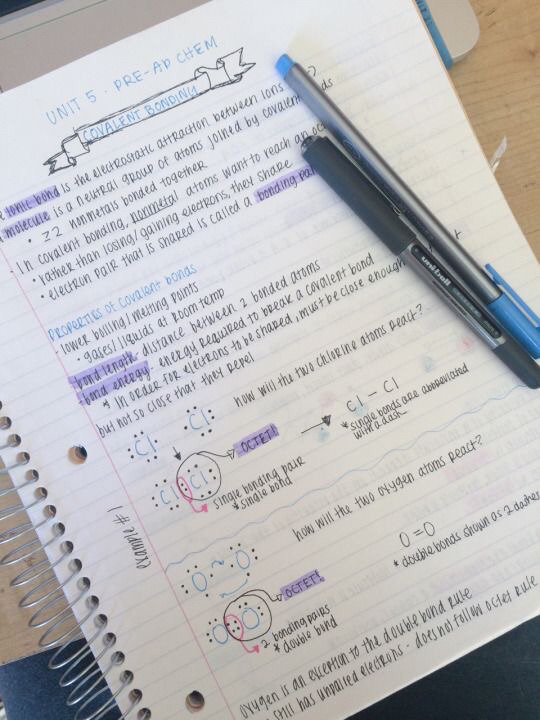 UNIT 5 · PRE-AP CHEM
COVALENT BONDING
ionic bond is the electrostatic attraction between ions
molecule is a neutral group of atoms joined by covalent
• ≥2 nonmetals bonded together
In covalent bonding, nonmetal atoms want to reach an
• rather than losing/gaining electrons, they share
• electron pair that is shared is called a bonding
PROPERTIES of covalent bonds
• lower boiling/melting points
• gases/liquids at room temp
• bond length: distance between 2 bonded atoms
• bond energy: energy required to break a covalent bond
* In order for electrons to be shared, must be close enough
but not so close that they repel
how will the two chlorine atoms react?
Cl Cl
OCTET!
Cl Cl
Cl – Cl
* single bonds are abbreviated
with a dash
single bonding pair
* single bond
example #1
how will the two oxygen atoms react?
O O
OCTET!
O O
O=O
* double bonds shown as 2 dashes
2 bonding pairs
* double bond
oxygen is an exception to the double bond rule
still has unpaired electrons - does not follow octet rule
uni-ball